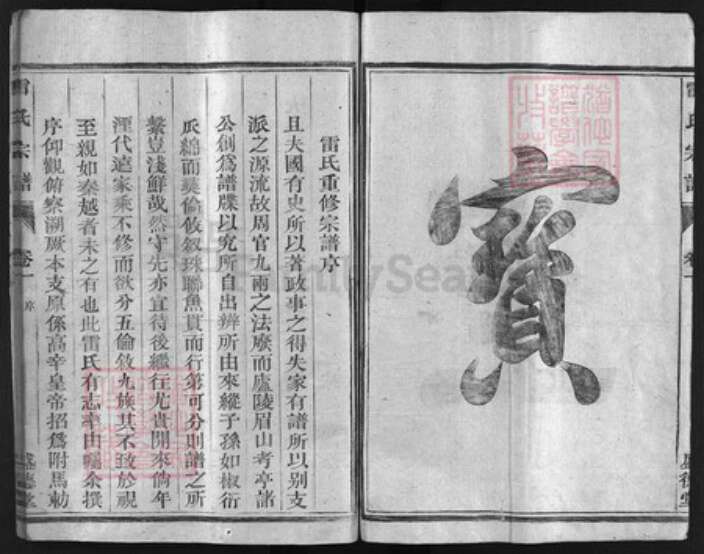 寶
雷氏宗譜
卷一
雷氏重修宗譜序
且夫國有史所以著政事之得失家有譜所以別支
派之源流故周官九兩之法廢而廬陵眉山考亭諸
公創為譜牒以究所自出辨所由來縱子孫如椒衍
瓜綿而彝倫攸敘珠聯魚貫而行第可分則譜之所
繫豈淺鮮哉然守先亦宜待後繼往尤貴開來倘年
湮代遠家乘不修而欲分五倫敘九族其不致於視
至親如秦越者未之有也此雷氏有志率由囑余撰
序仰觀俯察溯厥本支原係高辛皇帝招為附馬勅
雷氏宗譜
卷一
序
盛德堂
FamilySearch